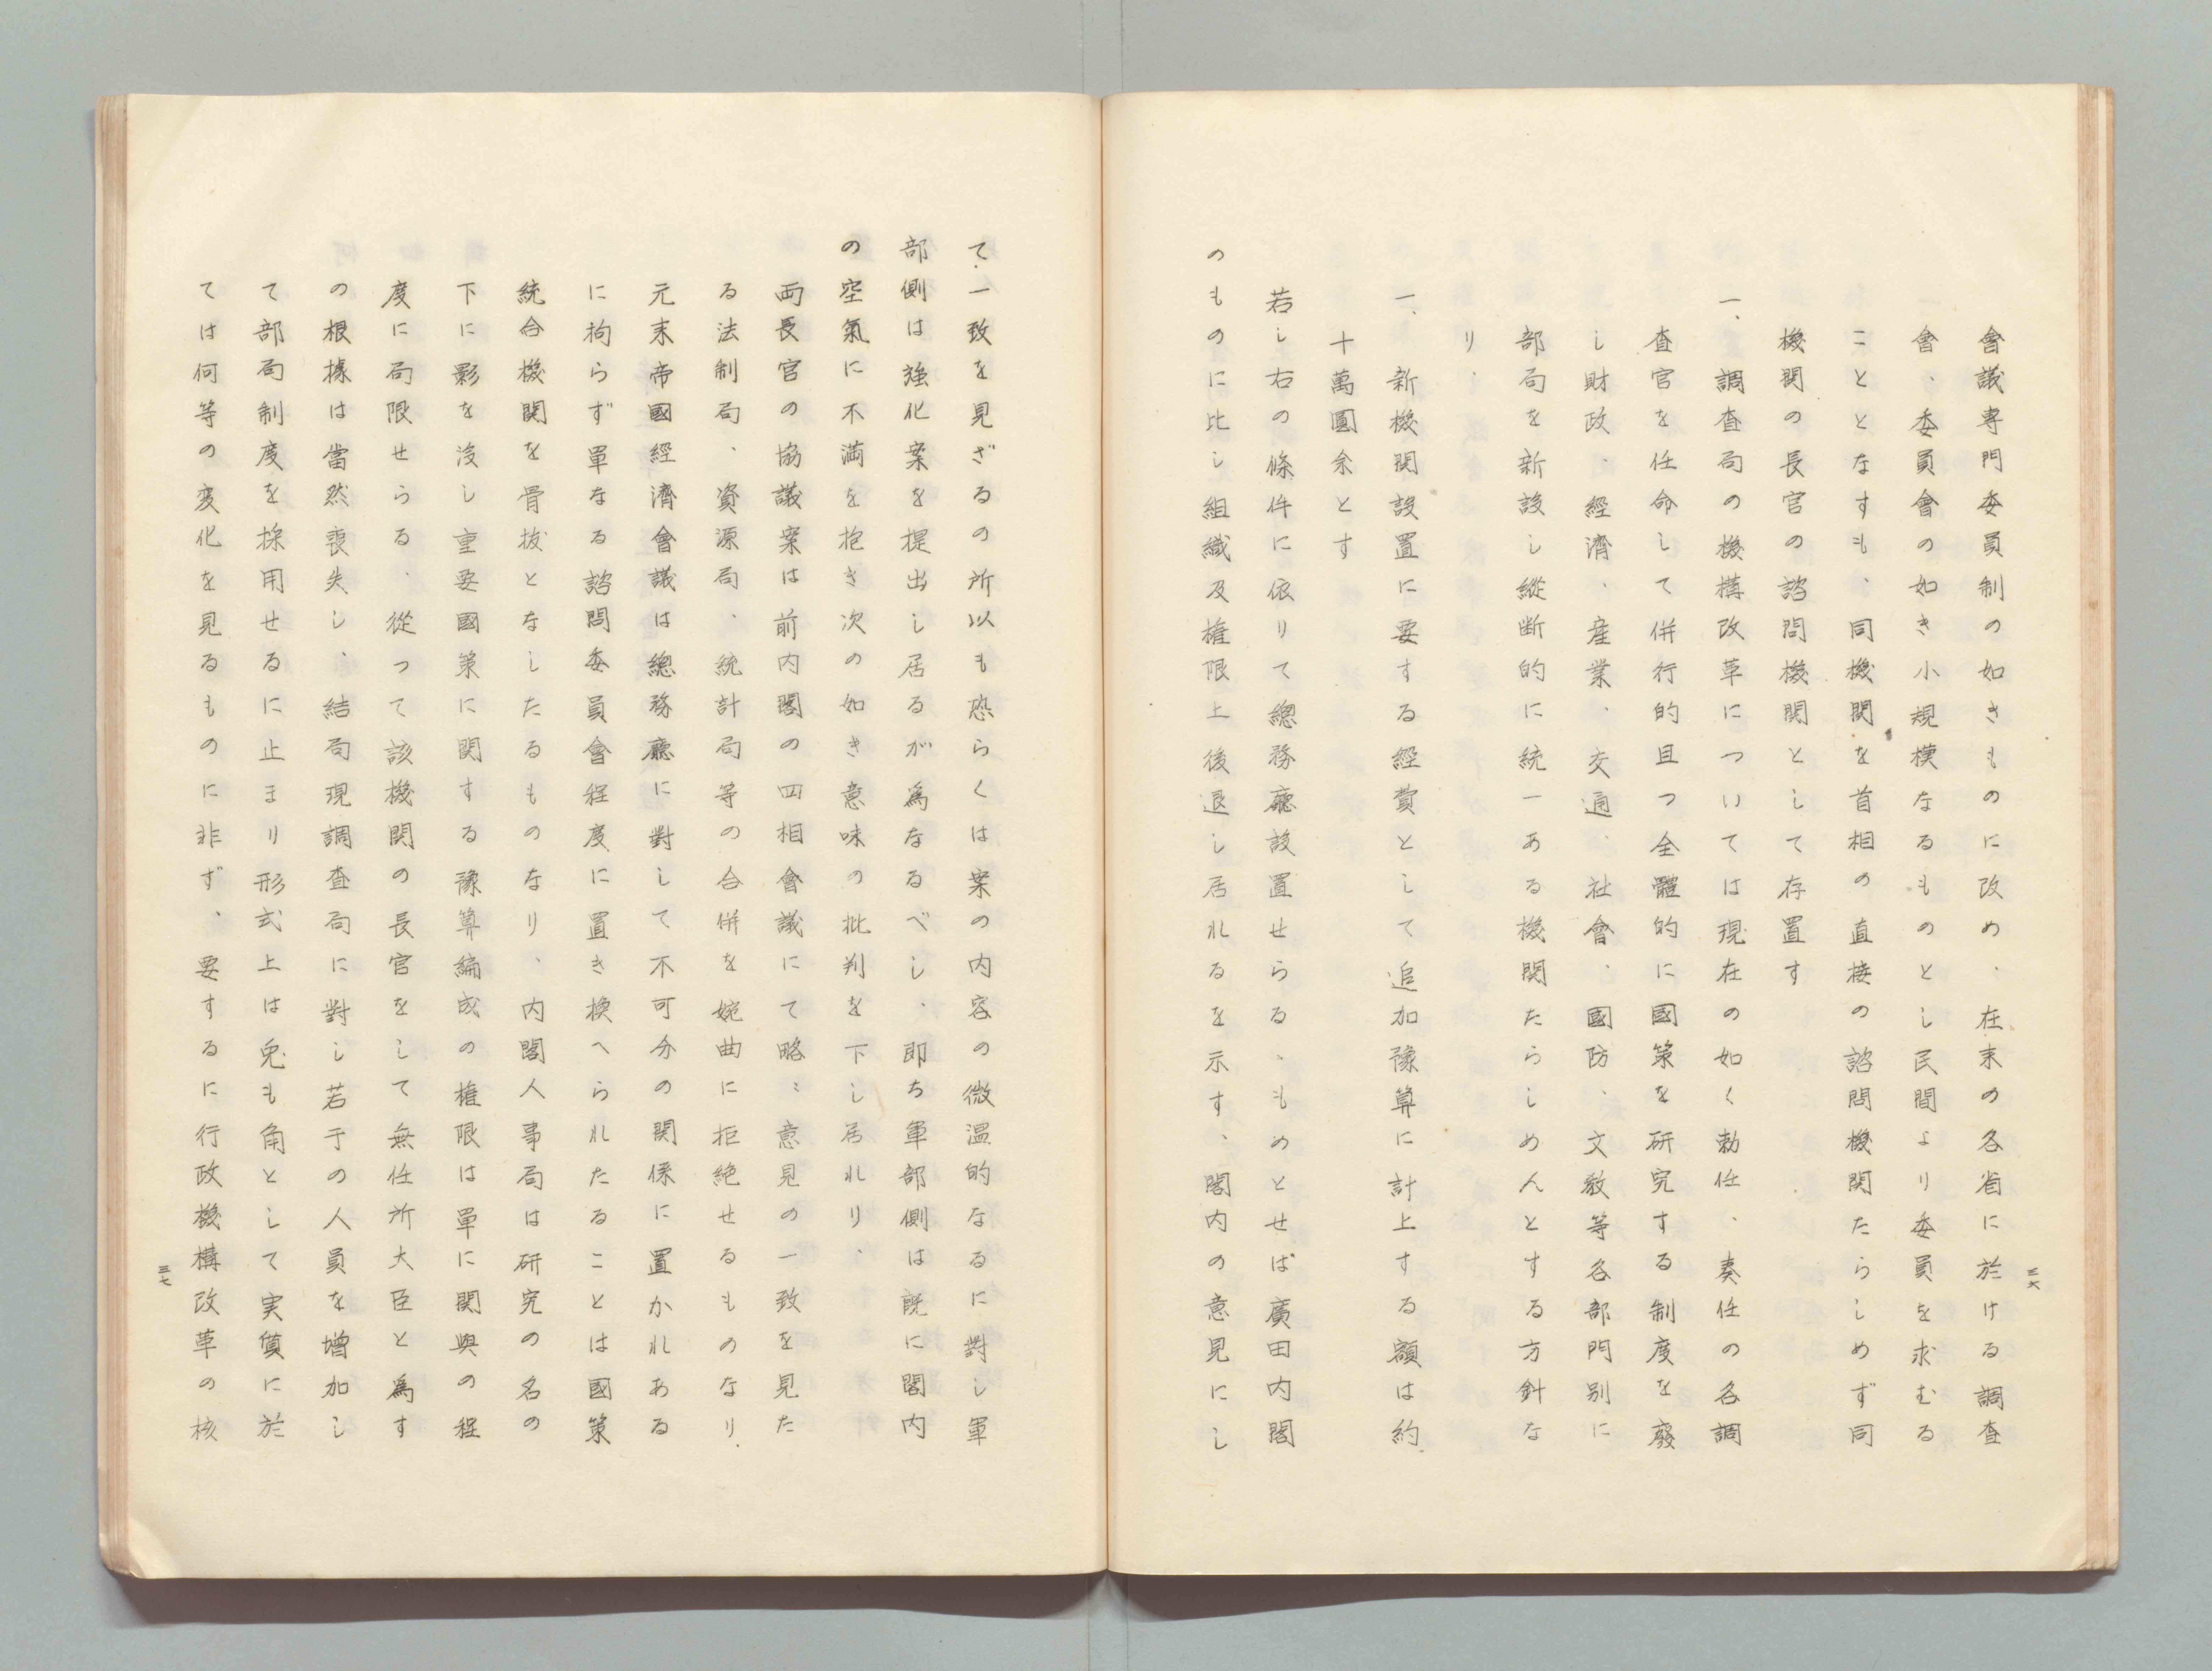 會議専門委員制の如きものに改め、在来の各省に於ける調査
會、委員會の如き小規模なるものとし民間より委員を求むる
こととなすも、同機関を首相の直接の諮問機関たらしめず同
機関の長官の諮問機関として存置す
一、調査局の機構改革については現在の如く勅任、奏任の各調
査官を任命して併行的且つ全體的に國策を研究する制度を廢
し財政、經濟、産業、交通、社會、國防、文敎等各部門別に
部局を新設し縱断的に統一ある機関たらしめんとする方針な
り、
一、新機関設置に要する経費として追加豫算に計上する額は約
十萬圓余とす
若し右の條件に依りて總務廳設置せらるゝものとせば廣田内閣
のものに比し組織及権限上後退し居れるを示す、閣内の意見にし
三六
て、一致を見ざるの所以も恐らくは案の内容の微温的なるに對し軍
部側は強化案を提出し居るが爲なるべし、即ち軍部側は既に閣内
の空氣に不満を抱き次の如き意味の批判を下し居れり、
両長官の協議案は前内閣の四相會議にて略〻意見の一致を見た
る法制局、資源局、統計局等の合併を婉曲に拒絶せるものなり、
元来帝國經濟會議は總務廳に對して不可分の関係に置かれある
に拘らず單なる諮問委員會程度に置き換へられたることは國策
統合機関を骨抜となしたるものなり、内閣人事局は研究の名の
下に影を沒し重要國策に関する豫算編成の権限は單に関與の程
度に局限せらる、従つて該機関の長官をして無任所大臣と爲す
の根據は當然喪失し、結局現調査局に對し若干の人員を増加し
て部局制度を採用せるに止まり形式上は兎も角として実質に於
ては何等の変化を見るものに非ず、要するに行政機構改革の核
三七